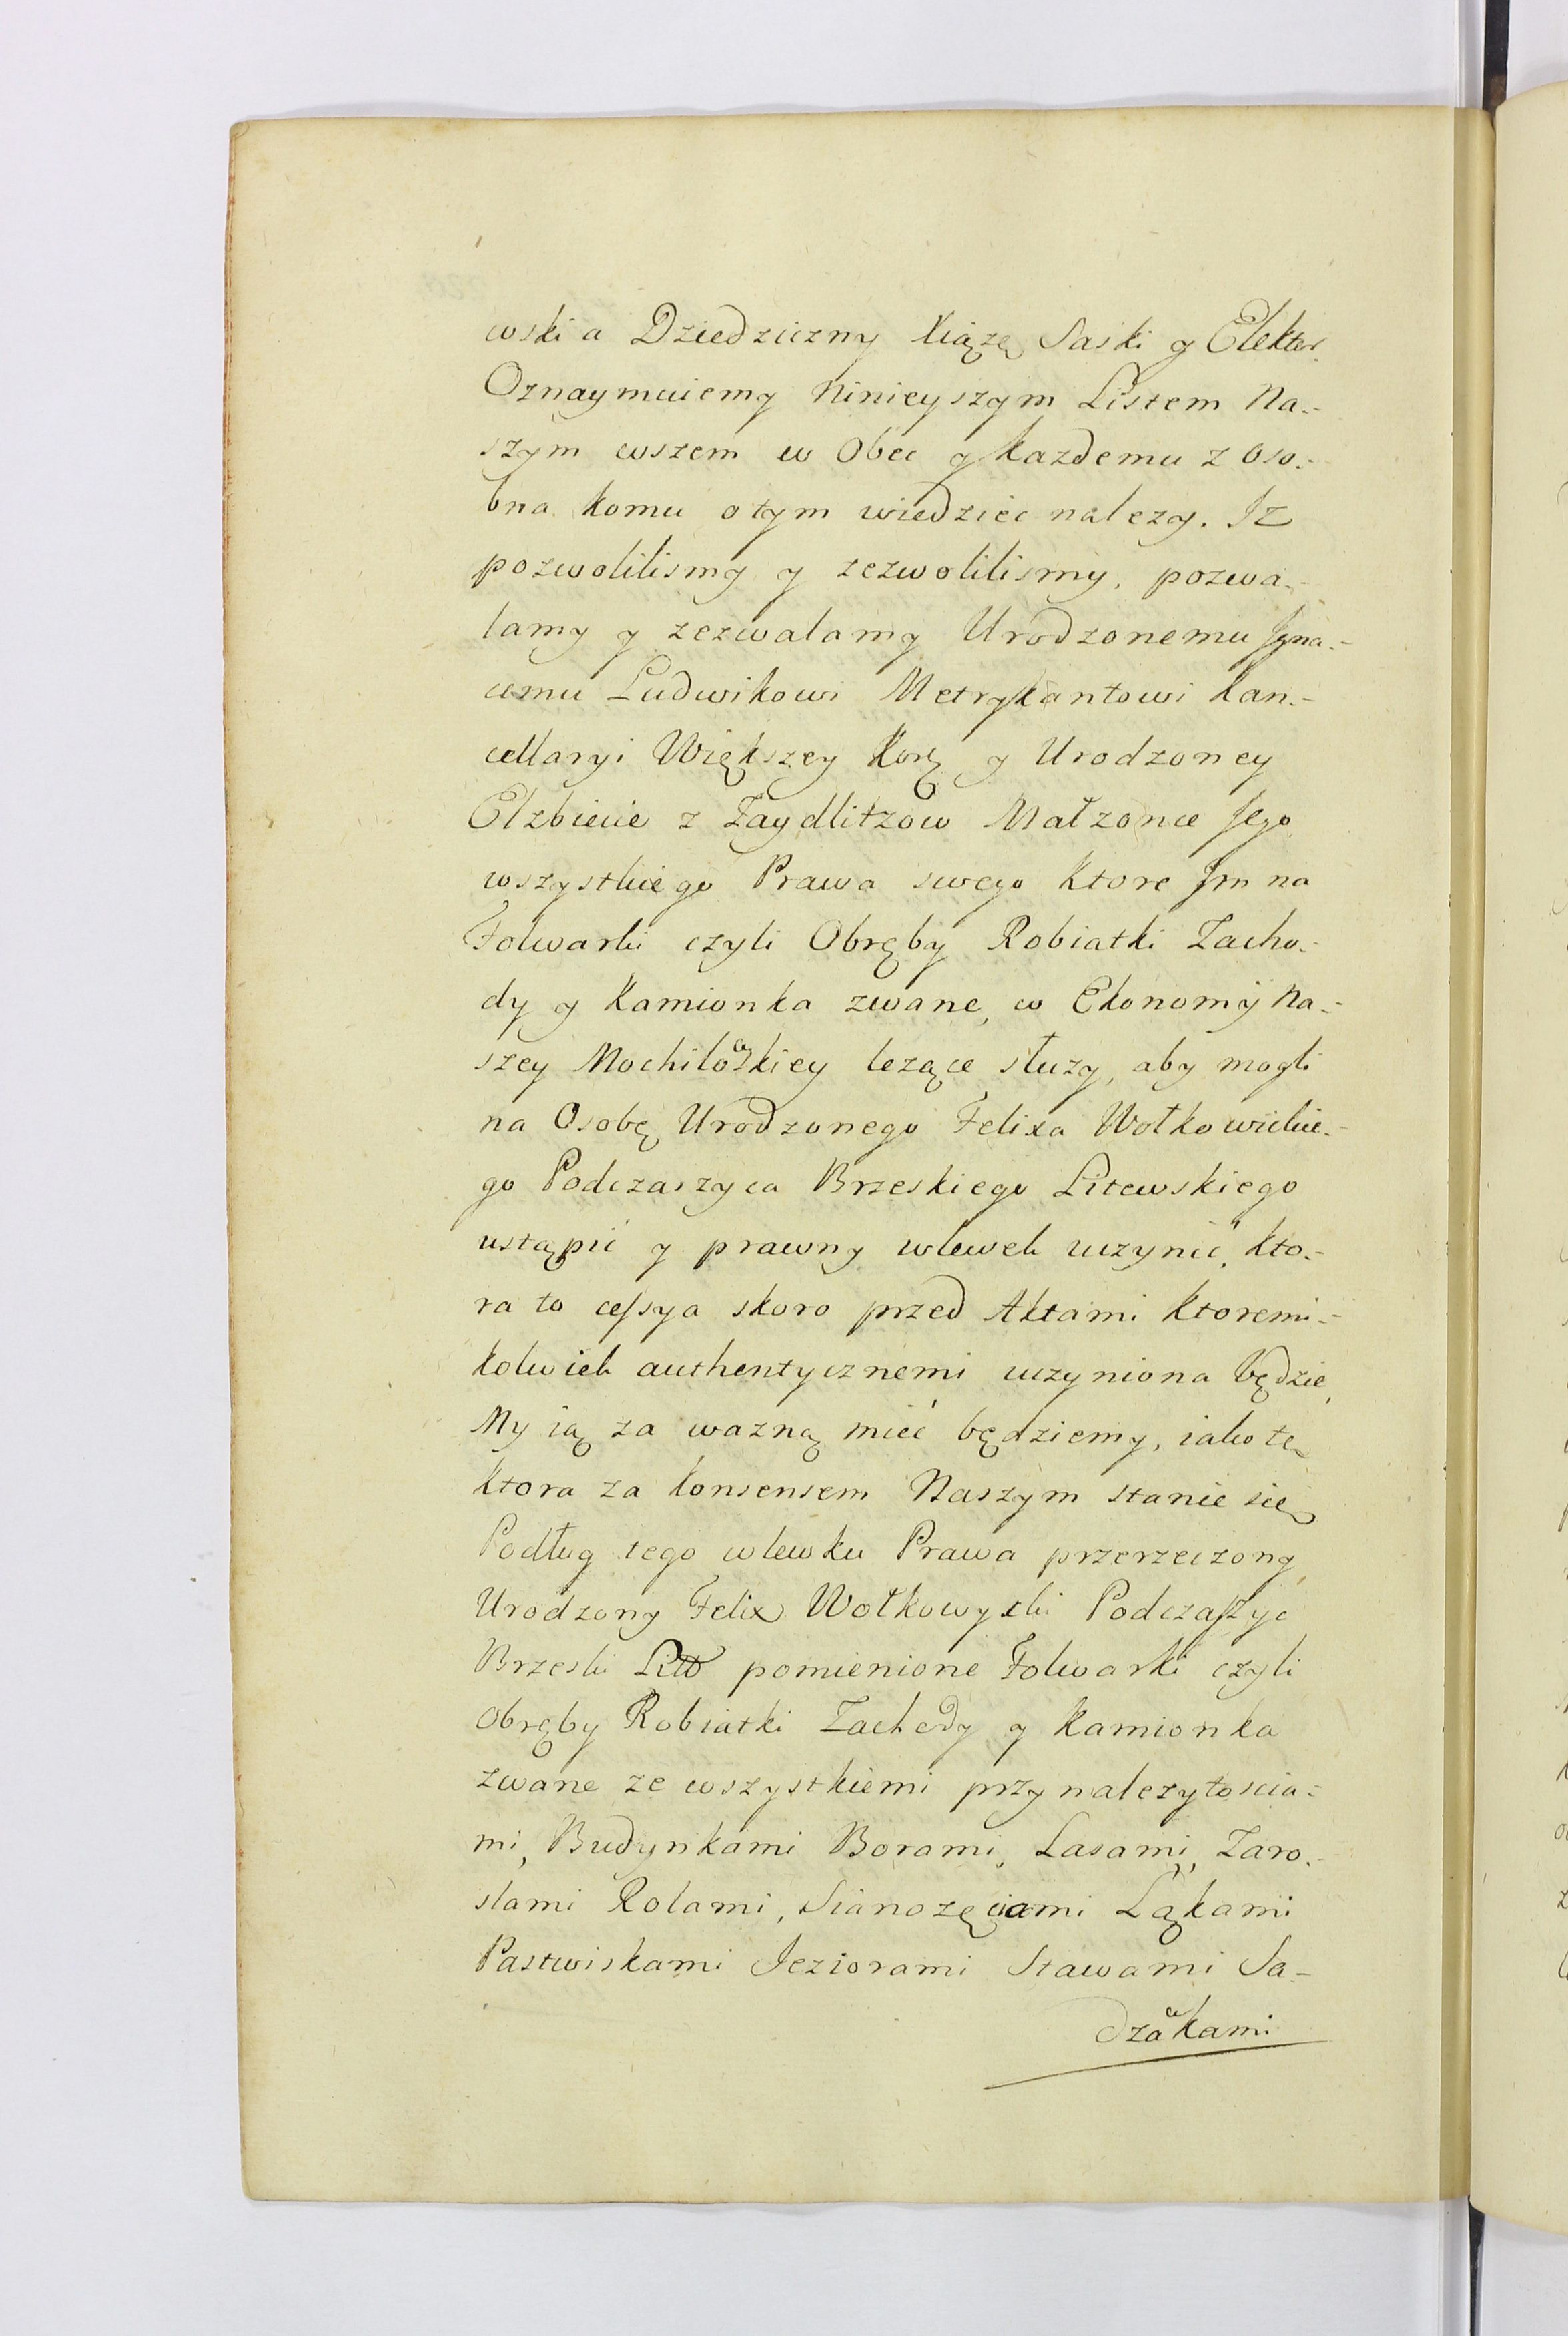 wski a Dziedziczny Xiążę Saski y Elektor
Oznaymuiemy Ninieyszym Listem Na-
szym wszem w Obec y każdemu z oso-
bna komu o tym wiedziec nalezy. Iz
pozwolilismy y zezwolilismy, pozwa-
lamy y zezwalamy Urodzonemu Igna-
cemu Ludwikowi Metrykantowi Kan-
cellaryi Większey Kor. y Urodzoney
Elzbiecie z Zaydlitzow Małzonce Jego
wszystkiego Prawa swego Ktore Jm na
Folwarki czyli Obręby Robiatki Zacho-
dy y Kamionka zwane, w Ekonomij Na-
szey Mochilowskiey lezące słuzy, aby mogli
na Osobę Urodzonego Felixa Wołkowickie-
go Podczaszyca Brzeskiego Litewskiego
ustąpić y prawny wlewek uczynić, kto-
ra to cessya skoro przed Aktami Ktoremi-
kolwiek authentycznemi uczyniona będzie,
My ią za wazną mieć będziemy, iako tę
ktora za konsensem Naszym stanie się
Podług tego wlewku Prawa przerzeczony,
Urodzony Felix Wołkowycki Podczaszyc
Brzeski Litt pomienione Folwarki czyli
obręby Robiatki Zachody y Kamionka
zwane ze wszystkiemi przynalezytoscia-
mi, Budynkami Borami, Lasami, Zaro-
slami Rolami, Sianozęciami Ląkami
Pastwiskami Jeziorami Stawami Sa-
dzawkami